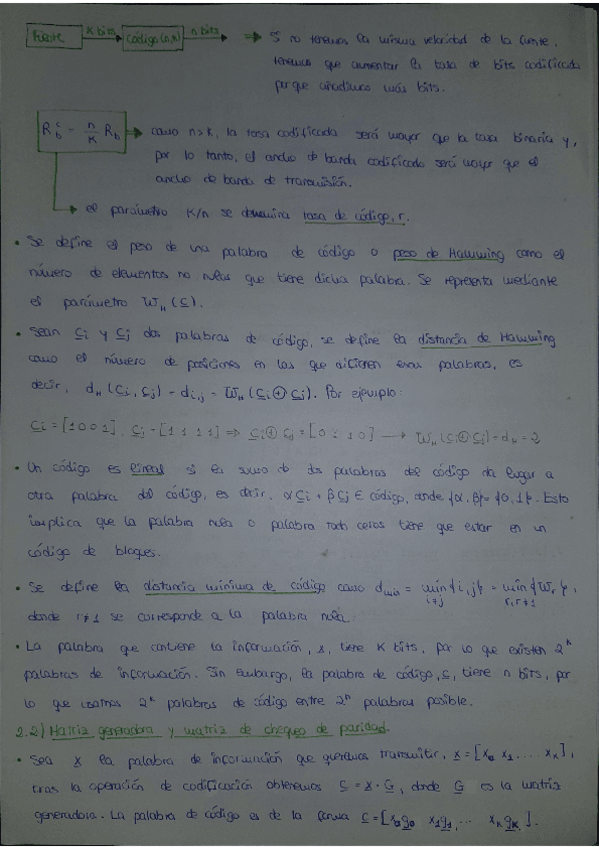 Fuente K bits código (n,k) n bits ⇒ Si no tenemos la misma velocidad de la fuente,
tenemos que aumentar la tasa de bits codificada
porque añadimos más bits.
R_b^c = n/K R_b → como n>K, la tasa codificada será mayor que la tasa binaria y,
por lo tanto, el ancho de banda codificado será mayor que el
ancho de banda de transmisión.
→ el parámetro K/n se denomina tasa de código, r.
• Se define el peso de una palabra de código o peso de Hamming como el
número de elementos no nulos que tiene dicha palabra. Se representa mediante
el parámetro W_H (c).
• Sean ci y cj dos palabras de código, se define la distancia de Hamming
como el número de posiciones en las que difieren esas palabras, es
decir, d_H (ci, cj) = d_i,j = W_H (ci ⊕ cj). Por ejemplo:
ci = [1 0 0 1], cj = [1 1 1 1] ⇒ ci ⊕ cj = [0 1 1 0] → W_H (ci ⊕ cj) = d_H = 2
• Un código es lineal si la suma de dos palabras del código da lugar a
otra palabra del código, es decir, αci + βcj ∈ código, donde {α, β} = {0, 1}. Esto
implica que la palabra nula o palabra todo ceros tiene que estar en un
código de bloques.
• Se define la distancia mínima de código como d_min = min{i,j} i≠j = min{W_r} r, r≠1,
donde r≠1 se corresponde a la palabra nula.
• La palabra que contiene la información, x, tiene K bits, por lo que existen 2^K
palabras de información. Sin Embargo, la palabra de código, c, tiene n bits, por
lo que usamos 2^K palabras de código entre 2^n palabras posible.
2.2) Matriz generadora y matriz de chequeo de paridad.
• Sea x la palabra de información que queremos transmitir, x = [x0 x1 ... xK],
tras la operación de codificación obtenemos c = x · G, donde G es la matriz
generadora. La palabra de código es de la forma c = [x0g0 x1g1, ... xKgK].